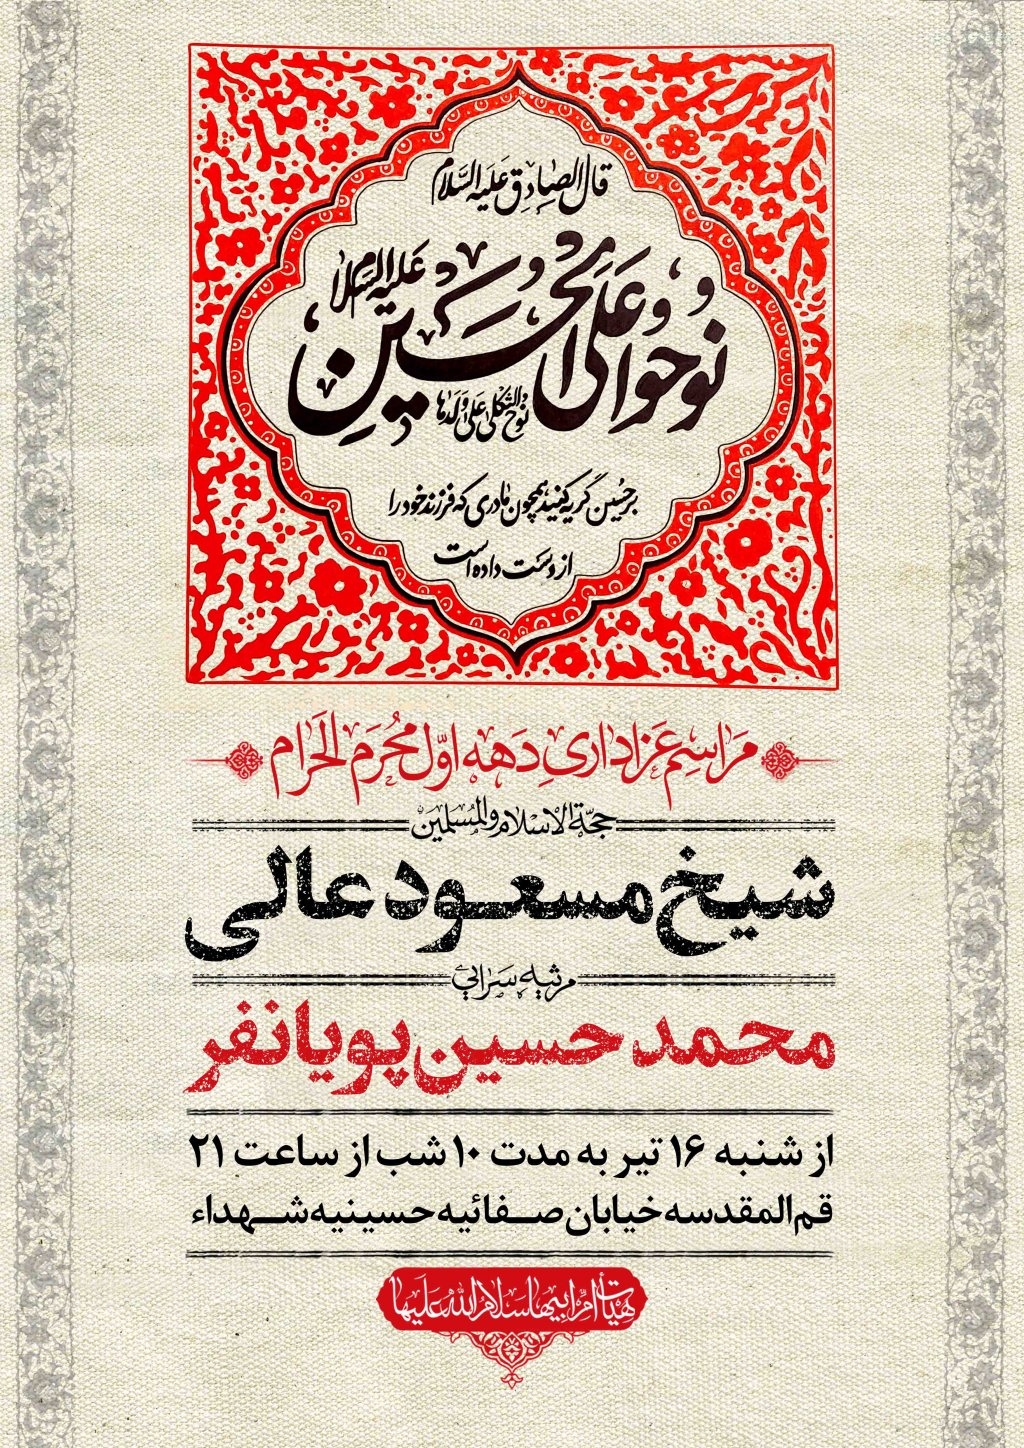 قال الصادق علیه السلام
نوحوا علی الحسین علیه السلام
نوح الثکلی علی ولدها
بر حسین گریه کنید همچون مادری که فرزند خود را
از دست داده است
مراسم عزاداری دهه اول محرم الحرام
حجة الاسلام والمسلمین
شیخ مسعود عالی
مرثیه سرایی
محمد حسین پویانفر
از شنبه ۱۶ تیر به مدت ۱۰ شب از ساعت ۲۱
قم المقدسه خیابان صفائیه حسینیه شهداء
هیأت ام ابیها سلام الله علیها